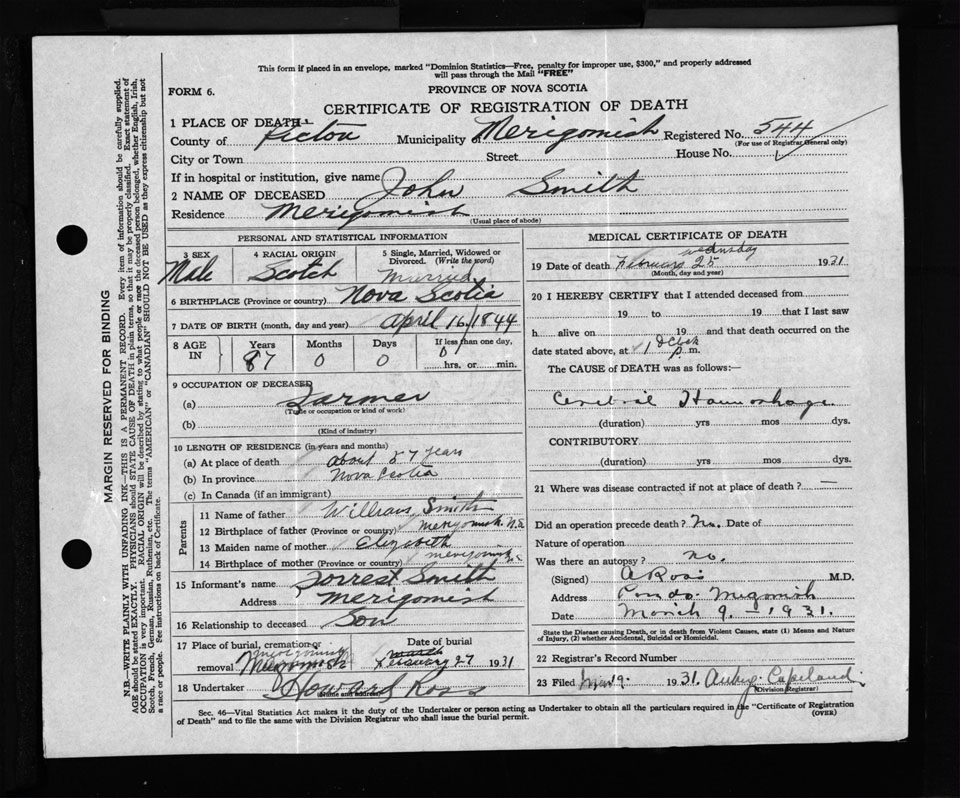 This form if placed in an envelope, marked "Dominion Statistics—Free, penalty for improper use, $300," and properly addressed
will pass through the Mail "FREE"
FORM 6.
PROVINCE OF NOVA SCOTIA
CERTIFICATE OF REGISTRATION OF DEATH
1 PLACE OF DEATH
County of Pictou Municipality of Merigomish Registered No. 544
(For use of Registrar General only)
City or Town Street House No.
If in hospital or institution, give name
2 NAME OF DECEASED John Smith
Residence Merigomish
(Usual place of abode)
PERSONAL AND STATISTICAL INFORMATION
3 SEX 4 RACIAL ORIGIN 5 Single, Married, Widowed or
Divorced. (Write the word)
Male Scotch Married
6 BIRTHPLACE (Province or country) Nova Scotia
7 DATE OF BIRTH (month, day and year) April 16/1844
8 AGE IN Years Months Days If less than one day,
87 0 0 0 hrs. or min.
9 OCCUPATION OF DECEASED
(a) Farmer
(Trade or occupation or kind of work)
(b)
(Kind of industry)
10 LENGTH OF RESIDENCE (in years and months)
(a) At place of death about 87 years
(b) In province Nova Scotia
(c) In Canada (if an immigrant)
Parents
11 Name of father William Smith
12 Birthplace of father (Province or country) Merigomish N.S
13 Maiden name of mother Elizabeth
14 Birthplace of mother (Province or country) Merigomish
15 Informant's name Forrest Smith
Address Merigomish
16 Relationship to deceased Son
17 Place of burial, cremation or Date of burial
removal Merigomish Merigomish March February 27 1931
18 Undertaker Howard Ross
(Name and address)
MEDICAL CERTIFICATE OF DEATH
Wednsday
19 Date of death February 25 1931
(Month, day and year)
20 I HEREBY CERTIFY that I attended deceased from
19 to 19 that I last saw
h alive on 19 and that death occurred on
date stated above, at 1 O'Clock p. m.
The CAUSE of DEATH was as follows:—
Cerebral Haemorhage
(duration) yrs mos dys.
CONTRIBUTORY
(duration) yrs. mos dys.
21 Where was disease contracted if not at place of death? —
Did an operation precede death? No. Date of
Nature of operation
Was there an autopsy? no.
(Signed) A Ross M.D.
Address
Date March 9. 1931.
State the Disease causing Death, or in death from Violent Causes, state (1) Means and Nature
of Injury, (2) whether Accidental, Suicidal or Homicidal.
22 Registrar's Record Number
23 Filed Mar 9. 1931. Copeland
(Division Registrar)
Sec. 46—Vital Statistics Act makes it the duty of the Undertaker or person acting as Undertaker to obtain all the particulars required in the "Certificate of Registration
of Death" and to file the same with the Division Registrar who shall issue the burial permit.
(OVER)
MARGIN RESERVED FOR BINDING
N.B.—WRITE PLAINLY WITH UNFADING INK—THIS IS A PERMANENT RECORD. Every item of information should be carefully supplied.
AGE should be stated EXACTLY. PHYSICIANS should STATE CAUSE OF DEATH in plain terms, so that it may be properly classified. Exact statement of
OCCUPATION is very important. RACIAL ORIGIN will be described by stating to what people or race the deceased person belonged, whether English, Irish,
Scotch, French, German, Russian, Ruthenian, etc. The terms "AMERICAN" or "CANADIAN" SHOULD NOT BE USED as they express citizenship but not
a race or people. See instructions on back of Certificate.